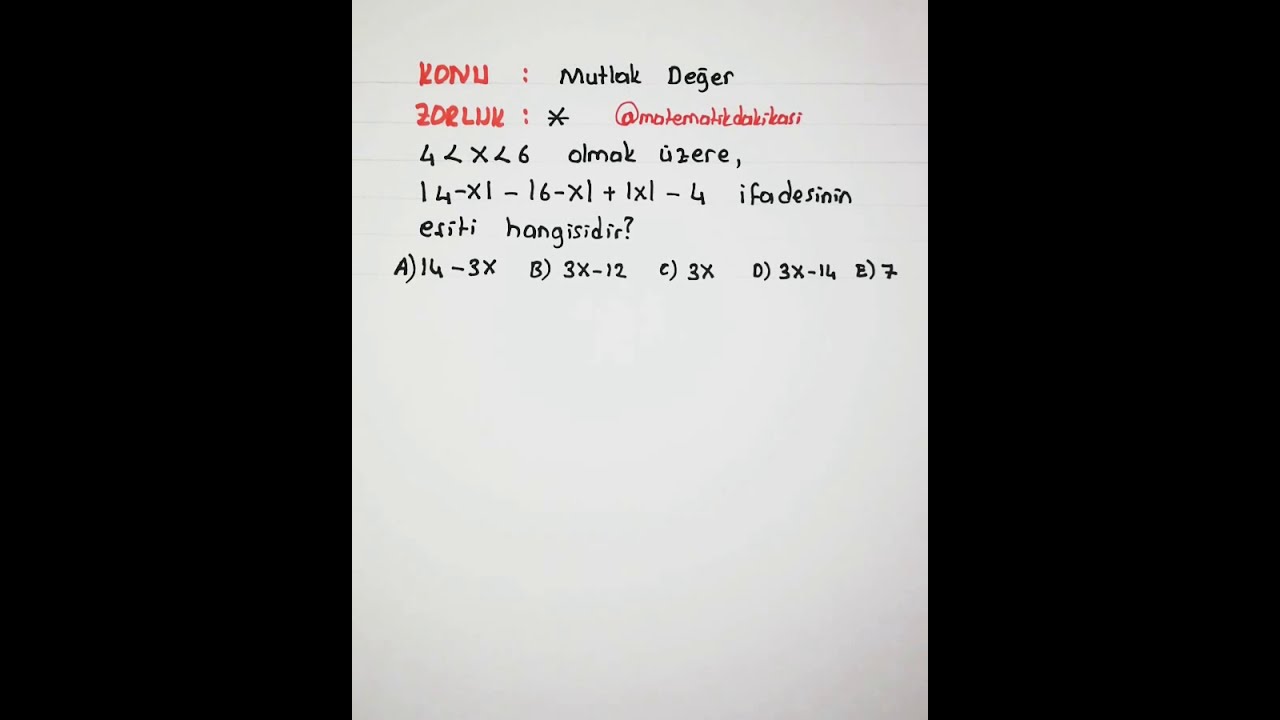 KONU : Mutlak Değer
ZORLUK : * @matematikdakikasi
4 < x < 6 olmak üzere,
|4-x| - |6-x| + |x| - 4 ifadesinin
eşiti hangisidir?
A) 14 - 3x B) 3x-12 C) 3x D) 3x-14 E) 7